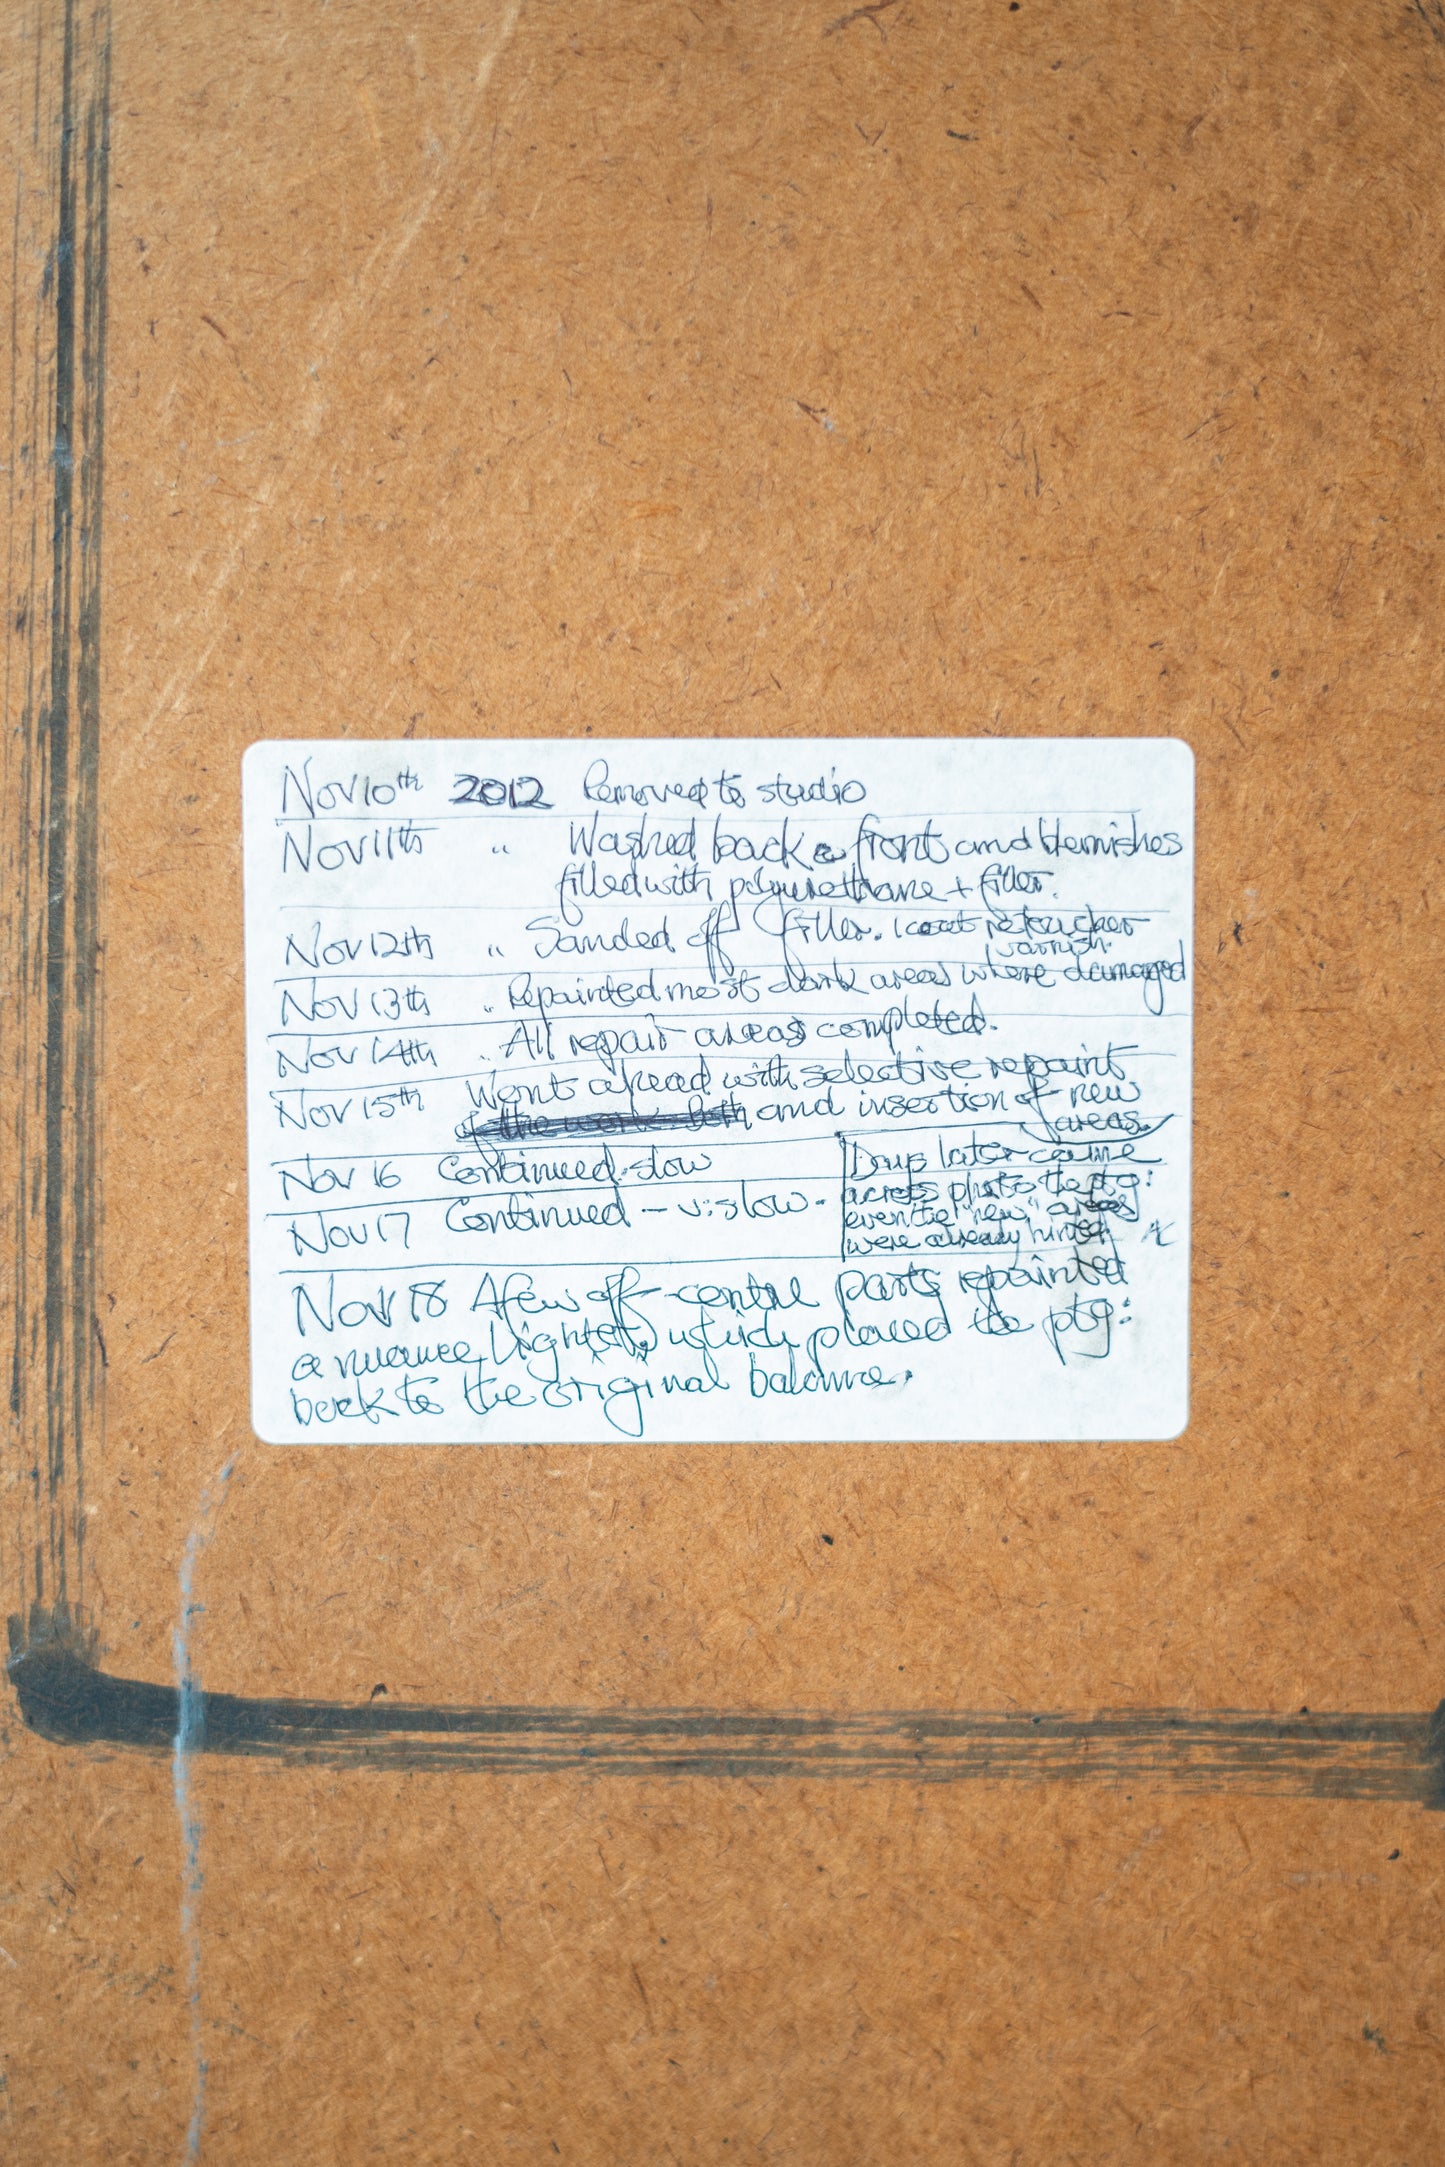 Nov 10th 2012 Removed to studio
Nov 11th " Washed back & front and blemishes
filled with polyurethane + filler.
Nov 12th " Sanded off filler. 1 coat retoucher
varnish.
Nov 13th " Repainted most dark areas where damaged
Nov 14th " All repair areas completed.
Nov 15th Went ahead with selective repaint
of the work. Both and insertion of new
areas.
Nov 16 Continued. slow
Nov 17 Continued – v: slow.
Days later came
across photo the ptg:
even the "new" areas
were already hinted
Nov 18 A few off-centre parts repainted
a nuance lighter, which placed the ptg:
back to the original balance.